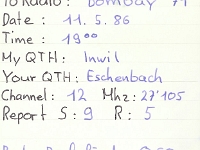 To Radio: Bombay 71
Date: 11. 5. 86
Time: 19⁰⁰
My QTH: Inwil
Your QTH: Eschenbach
Channel: 12 Mhz: 27'105
Report S: 9 R: 5